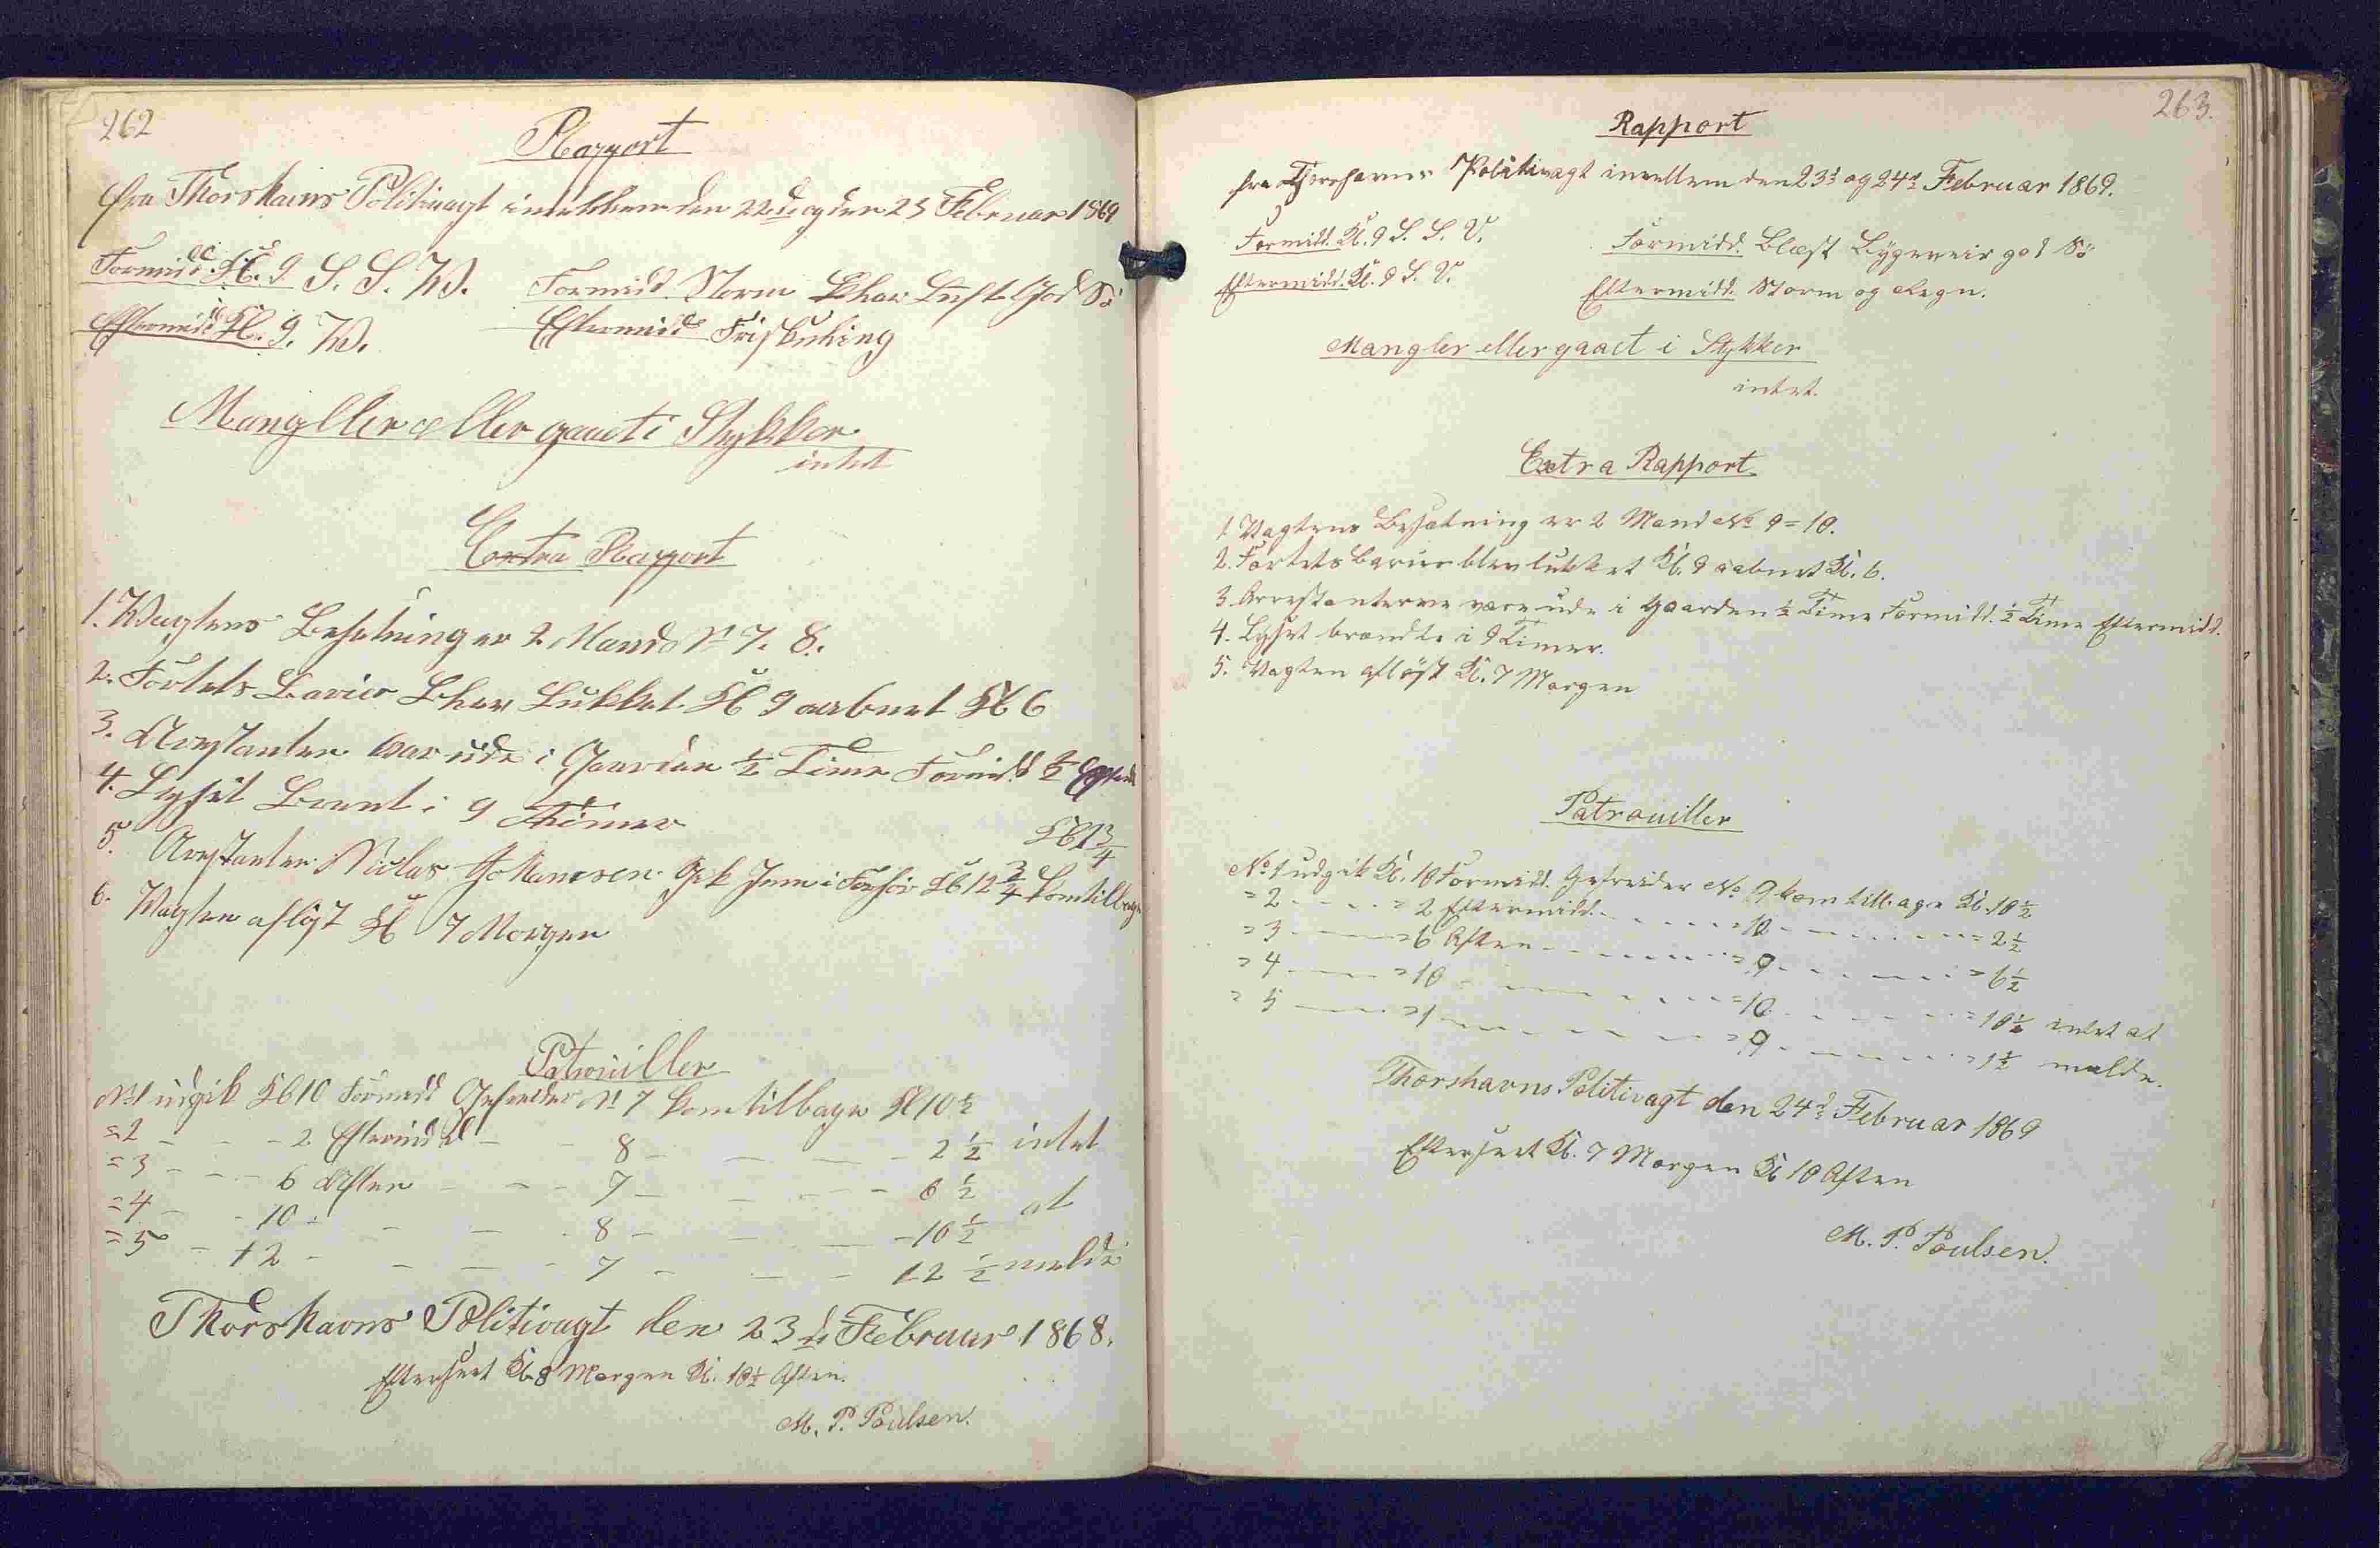 262
Rapport
fra Thorshavns Politivagt imellem den 22de og den 23 Februar 1869
Formidd Kl. 9. S. S. W. Formidd Storm Skar Luft God Sö
Eftermidd Kl. 9. W. Eftermidd Frisk
Mangller eller gaaet i Stykker
intet
Extra Rapport
1. Wagtens Besetning er 2 Mand No 7. 8.
2. Fortets Barier Blev Lukket Kl 9 aabnet Kl. 6
3. Arestanten var ude i Gaarden ½ Time Formidd ½ Efterm
4. Lyset Brent i 9 Thimer
Kl 1¾
5. Arestanten Niclas Johannesen Gik Inn i Forhör Kl 12¾ kom tilbage
6. Wagten aflöst Kl 7 Morgen
Patrouiller
No 1 udgik Kl 10 Formidd Gefreider No 7 kom tilbage Kl 10½
=2 - - - 2 Eftermidd - - 8 - - - 2½ intet
=3 - - - 6 Aften - - - 7 - - - 6½
=4 - - 10 - - - 8 - - - 10½ at
=5 - 12 - - - - 7 - - - 12½ melde
Thorshavns Politivagt den 23de Februar 1868.
Efterseet Kl. 8 Morgen Kl. 10½ Aften.
M. P. Poulsen.
263.
Rapport
fra Thorshavns Politivagt imellem den 23d og 24d Februar 1869.
Formidd. Kl. 9 S. S. V. Formidd. Blæst Bygeveir god Sö
Eftermidd. Kl. 9 S. V. Eftermidd. Storm og Regn.
Mangler eller gaaet i Stykker
intet.
Extra Rapport
1 Vagtens Besætning er 2 Mand No 9 = 10.
2. Fortets Barier blev lukket Kl. 9 aabnet Kl. 6.
3 Arrestanterne vare ude i Gaarden ½ Time Formidd. ½ Time Eftermidd.
4. Lyset brændte i 9 Timer.
5. Vagten aflöst Kl. 7 Morgen
Patrouiller
No 1 udgik Kl. 10 Formidd. Gefreider No 9 kom tilbage Kl. 10½
= 2 - - - = 2 Eftermidd. - - - = 10 - - - = 2½
= 3 - - - = 6 Aften - - - = 9 - - - = 6½
= 4 - - - = 10 - - - = 10 - - - = 10½ intet at
= 5 - - - = 1 - - - = 9 - - - = 1½ melde.
Thorshavns Politivagt den 24d Februar 1869
Efterseet Kl. 7 Morgen Kl 10 Aften
M. P. Poulsen.